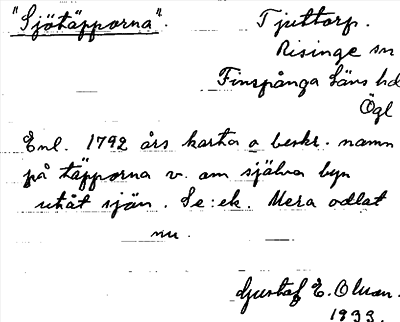 "Sjötäpporna".
Tjuttorp.
Risinge sn
Finspånga läns hd
Ögl
Enl. 1792 års karta o beskr. namn
på täpporna v. om själva byn
utåt sjön. Se: ek. Mera odlat
nu.
Gustaf E. Olsson.
1933.